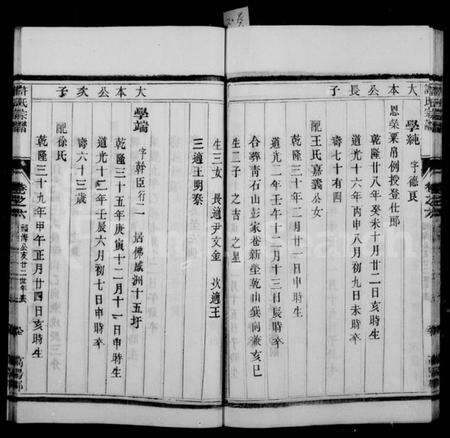 大本公長子
學純 字德民
恩榮粟捐例授登仕郎
乾隆廿八年癸未十月廿二日亥時生
道光十六年丙申八月初九日未時卒
壽七十有四
配王氏嘉義公女
乾隆三十年二月初一日亥時生
道光二年壬午十二月十三日辰時卒
合葬青石山彭家巷新塋乾山巽向兼亥巳
生二子 之吉 之星
生三女 長適尹文金 次適王
三適王明泰
大本公次子
學端 字幹臣行二 居佛感洲十五圩
乾隆三十五年庚寅十二月十一日申時生
道光十二年壬辰六月初七日申時卒
壽六十三歲
配徐氏
乾隆三十九年甲午正月廿四日亥時生
卷之六